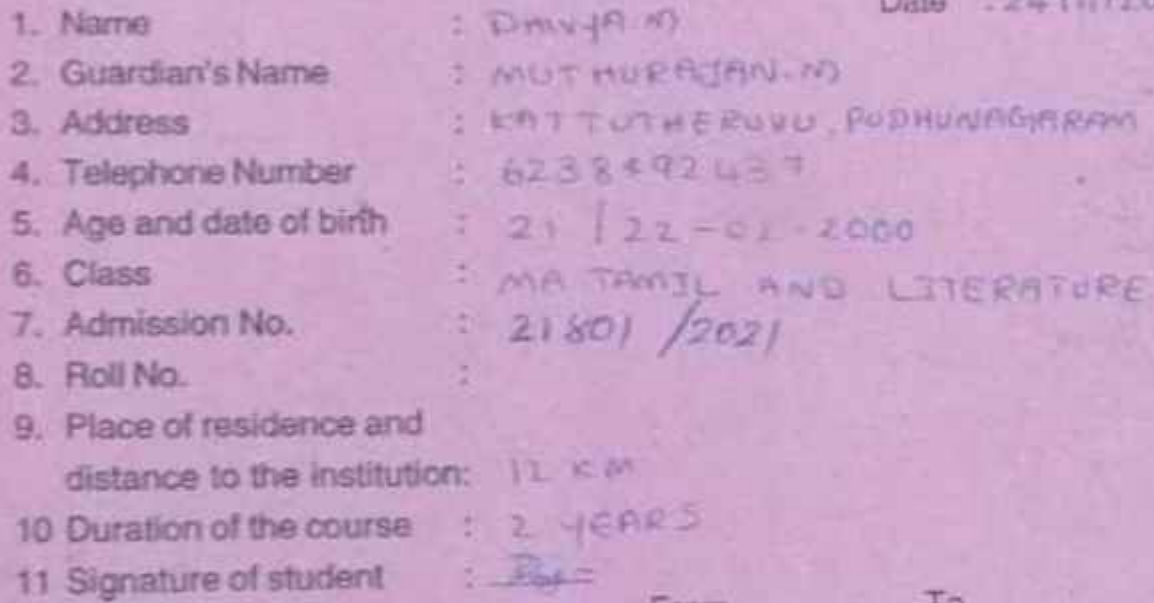 Date :
1. Name : DHIVYA.M
2. Guardian's Name : MUTHURAJAN.M
3. Address : KATTUTHERUVU, PUDHUNAGARAM
4. Telephone Number :
5. Age and date of birth : 21 / 22-02-2000
6. Class : MA TAMIL AND LITERATURE
7. Admission No. : 21801 /2021
8. Roll No. :
9. Place of residence and
distance to the institution: 12 KM
10 Duration of the course : 2 YEARS
11 Signature of student :
From To